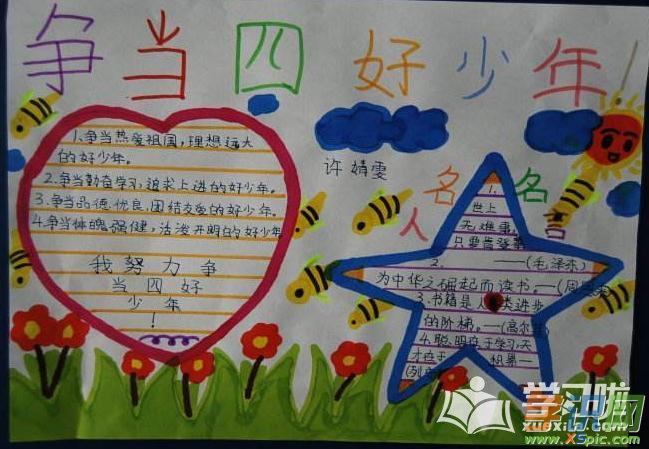 争当四好少年！
1.争当热爱祖国，理想远大
的好少年。
2.争当勤奋学习，追求上进的好少年。
3.争当品德优良，团结友爱的好少年。
4.争当体魄强健，活泼开朗的好少年
我努力争
当四好
少年
！
许婧雯
名人名言
1.
世上
无难事，
只要肯登攀
2. ——(毛泽东)
为中华之崛起而读书。—(周
3.书籍是人类进步
的阶梯。—(高尔基
4.聪明在于学习，天
才在于 积累—
(列
学习啦
xuexila.com
图网
www.XSpic.com